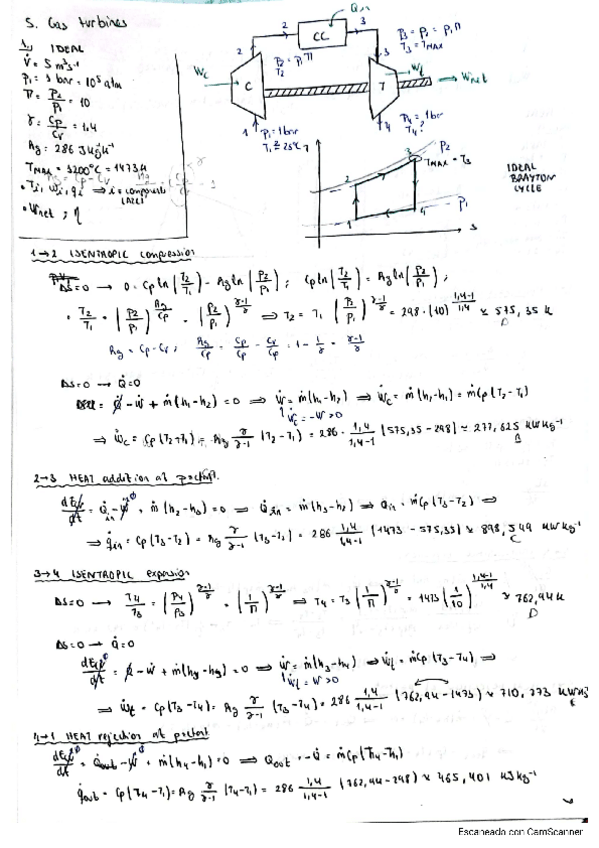 5. Gas turbines
1. IDEAL
V̇ = 5 m³s⁻¹
p₁ = 1 bar = 10⁵ atm
π = p₂/p₁ = 10
γ = cp/cv = 1,4
Rg = 286 J kg⁻¹K⁻¹
TMAX = 1200°C = 1473 K
Rg = cp - cv
Wnet ; η
Qin
2 CC 3
p₂ = p₁ π
T₂
p₃ = p₂ = p₁ π
T₃ = TMAX
Wc
C
T
Wt
Wnet
1 p₁ = 1 bar
T₁ = 25°C
4 p₄ = 1 bar
T₄?
T
p₂
3
TMAX = T₃
2
1
4
p₁
s
IDEAL
BRAYTON
CYCLE
1→2 ISENTROPIC compression
Δs=0 → 0 = cp ln(T₂/T₁) - Rg ln(p₂/p₁) ; cp ln(T₂/T₁) = Rg ln(p₂/p₁) ;
T₂/T₁ = (p₂/p₁)^(Rg/cp) = (p₂/p₁)^((γ-1)/γ) ⇒ T₂ = T₁ (p₂/p₁)^((γ-1)/γ) = 298·(10)^((1,4-1)/1,4) ≈ 575,35 K
Rg = cp - cv ; Rg/cp = cp/cp - cv/cp = 1 - 1/γ = (γ-1)/γ
Δs=0 → Q̇=0
Q̇ - Ẇ + ṁ(h₁-h₂) = 0 ⇒ Ẇ = ṁ(h₁-h₂) ⇒ Ẇc = ṁ(h₂-h₁) = ṁcp(T₂-T₁)
Ẇc = -Ẇ > 0
⇒ ẇc = cp(T₂-T₁) = Rg γ/(γ-1) (T₂-T₁) = 286 · 1,4/(1,4-1) (575,35 - 298) ≈ 277,625 kW kg⁻¹
2→3 HEAT addition at p=ctant.
dE/dt = Q̇in - Ẇ + ṁ(h₂-h₃) = 0 ⇒ Q̇in = ṁ(h₃-h₂) ⇒ Q̇in = ṁcp(T₃-T₂) ⇒
⇒ q̇in = cp(T₃-T₂) = Rg γ/(γ-1) (T₃-T₂) = 286 1,4/(1,4-1) (1473 - 575,35) ≈ 898,549 kW kg⁻¹
3→4 ISENTROPIC expansion
Δs=0 → T₄/T₃ = (p₄/p₃)^((γ-1)/γ) = (1/π)^((γ-1)/γ) ⇒ T₄ = T₃ (1/π)^((γ-1)/γ) = 1473 (1/10)^((1,4-1)/1,4) ≈ 762,94 K
Δs=0 → Q̇=0
dE/dt = Q̇ - Ẇ + ṁ(h₃-h₄) = 0 ⇒ Ẇ = ṁ(h₃-h₄) ⇒ Ẇt = ṁcp(T₃-T₄) ⇒
Ẇt = Ẇ > 0
⇒ ẇt = cp(T₃-T₄) = Rg γ/(γ-1) (T₃-T₄) = 286 1,4/(1,4-1) (762,94 - 1473) ≈ 710,773 kW kg⁻¹
4→1 HEAT rejection at p=ctant
dE/dt = Q̇out - Ẇ + ṁ(h₄-h₁) = 0 ⇒ Q̇out = -Q̇ = ṁcp(T₄-T₁)
q̇out = cp(T₄-T₁) = Rg γ/(γ-1) (T₄-T₁) = 286 1,4/(1,4-1) (762,94 - 298) ≈ 465,401 kJ kg⁻¹
Escaneado con CamScanner